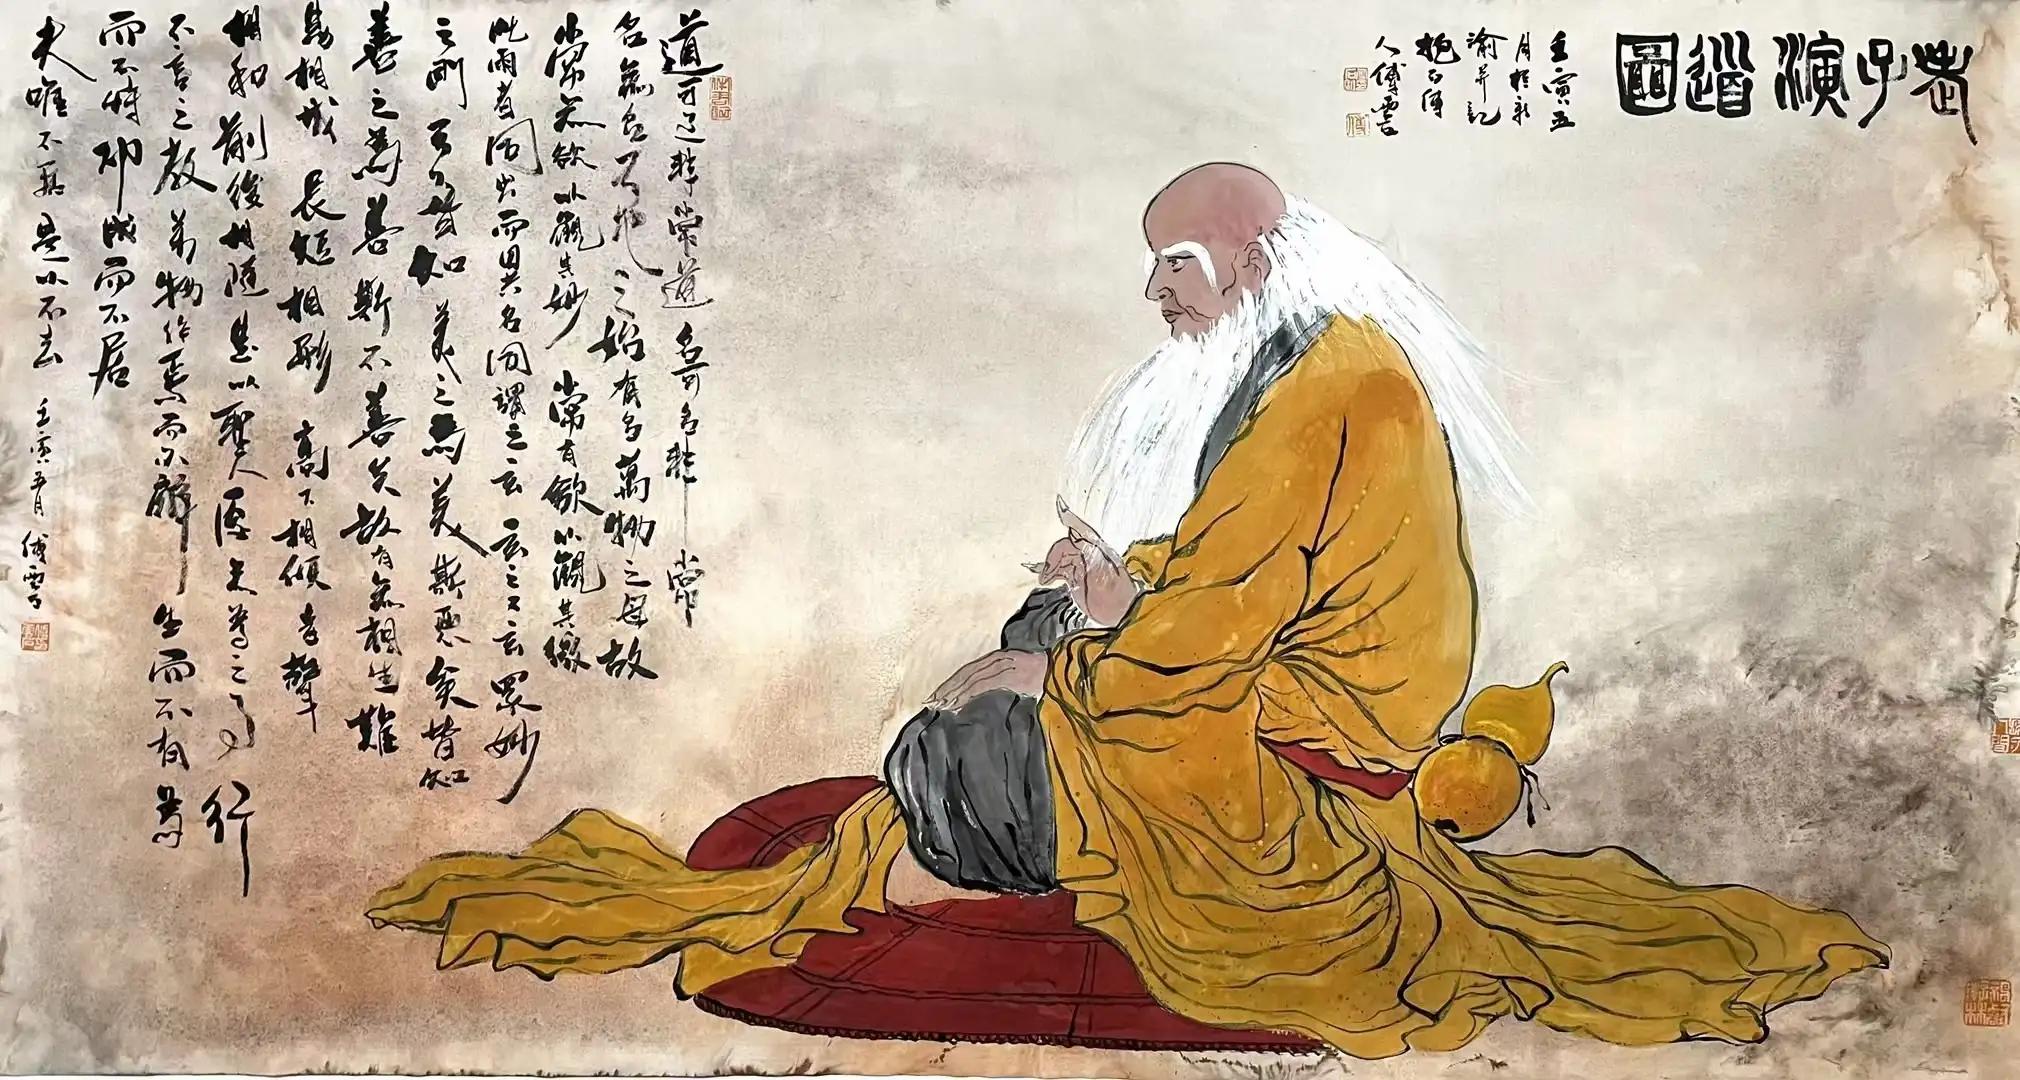 老子演道圖
壬寅五
月於新
渝并記
抱石傳
人傅
道可道非常道名可名非常
名無名天地之始有名萬物之母故
常無欲以觀其妙常有欲以觀其徼
此兩者同出而異名同謂之玄玄之又玄眾妙
之門天下皆知美之為美斯惡矣皆知
善之為善斯不善矣故有無相生難
易相成長短相形高下相傾音聲
相和前後相隨是以聖人處無為之事行
不言之教萬物作焉而不辭生而不有為
而不恃功成而不居
夫唯不居是以不去 壬寅五月 傅